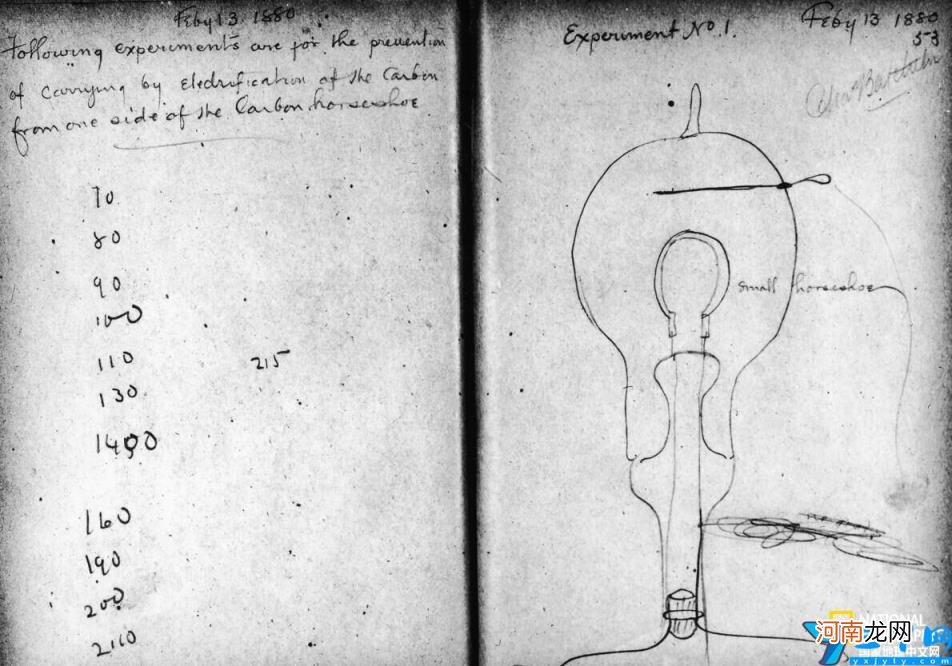 Feby 13 1880
Following experiments are for the prevention
of carrying by Electrification of the Carbon
from one side of the Carbon horseshoe
70
80
90
100
110
215
130
1400
160
190
200
2110
Experiment No 1.
Feby 13 1880
53
small horseshoe
NATIONAL
河南龙网
国家地理中文网
yxlyly.com